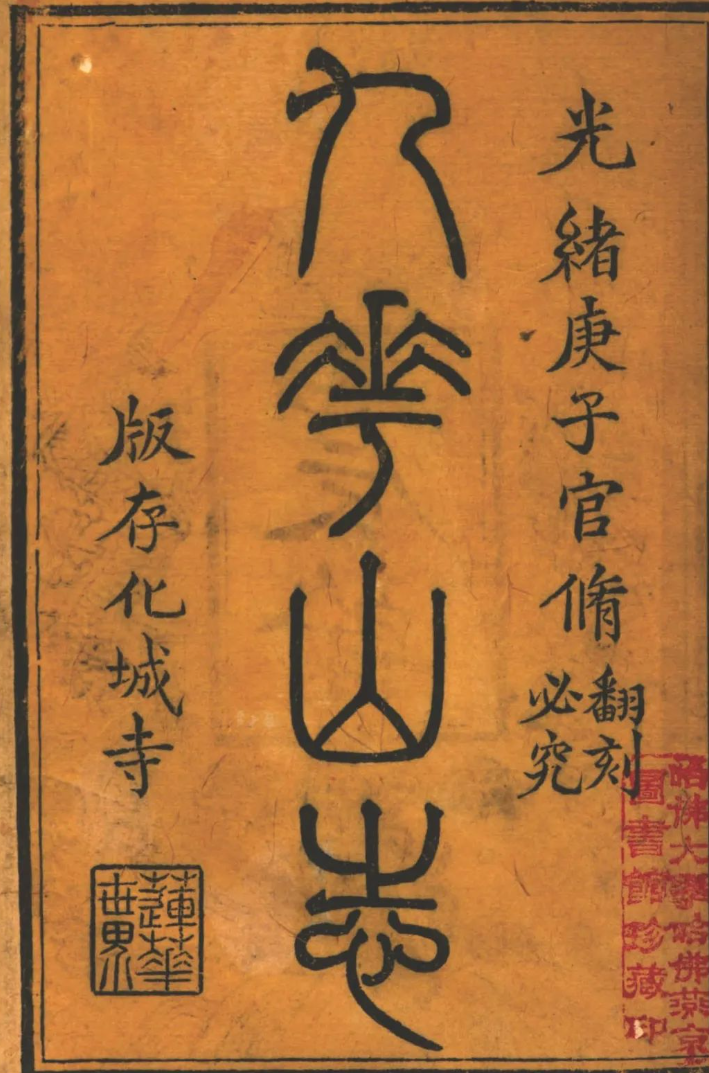 光緒庚子官脩
翻刻
必究
九華山志
版存化城寺
蓮華
世界
哈佛大學哈佛燕京
圖書館珍藏印